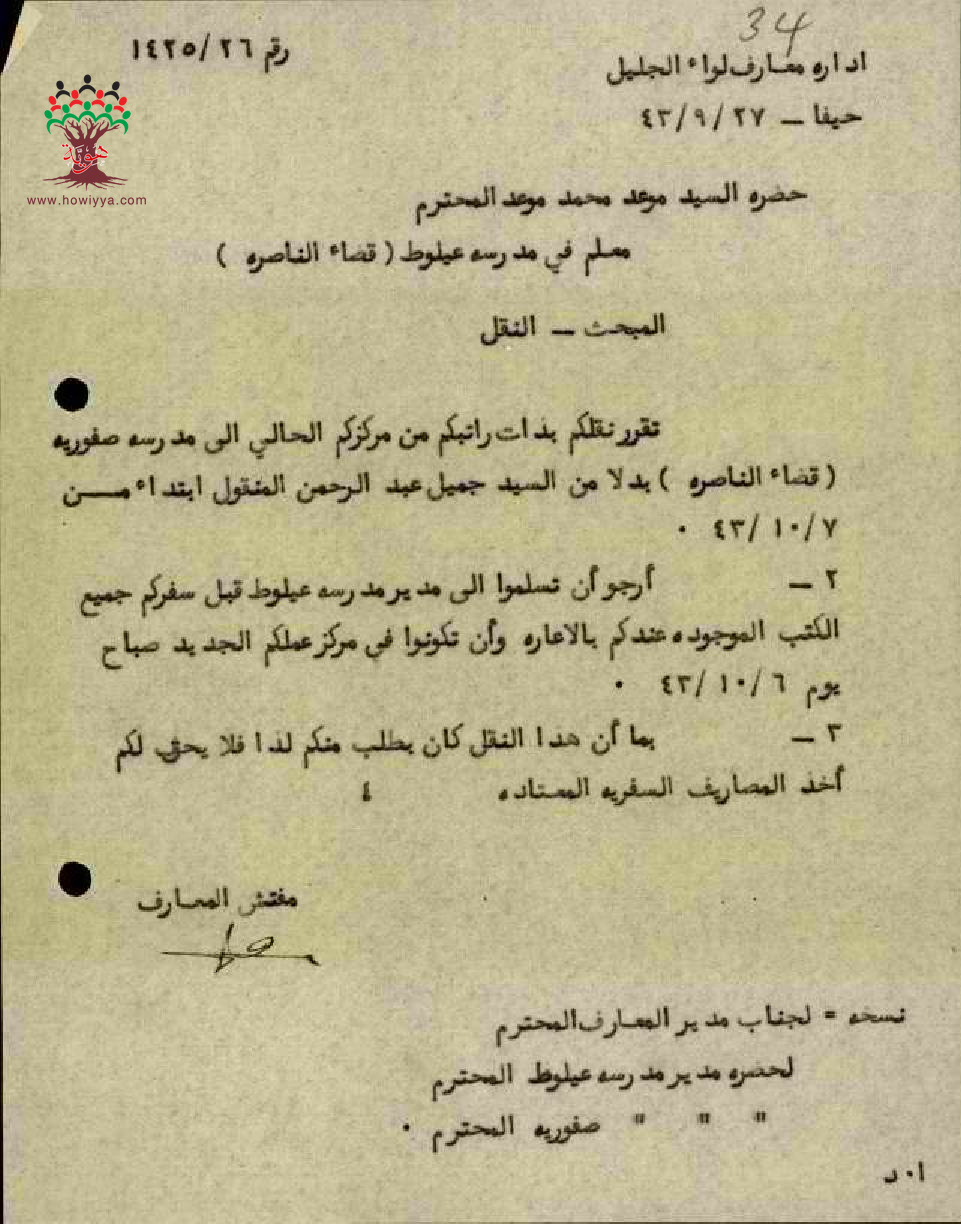 34
رقم ١٤٢٥/٢٦
اداره معارف لواء الجليل
حيفا – ٤٣/٩/٢٧
هوية
www.howiyya.com
حضره السيد موعد محمد موعد المحترم
معلم في مدرسه عيلوط ( قضاء الناصره )
المبحث – النقل
تقرر نقلكم بذات راتبكم من مركزكم الحالي الى مدرسه صفوريه
( قضاء الناصره ) بدلا من السيد جميل عبد الرحمن المنقول ابتداء من
٤٣/١٠/٧ ٠
٢ – أرجو أن تسلموا الى مدير مدرسه عيلوط قبل سفركم جميع
الكتب الموجوده عندكم بالاعاره وأن تكونوا في مركز عملكم الجديد صباح
يوم ٤٣/١٠/٦ ٠
٣ – بما أن هذا النقل كان بطلب منكم لذا فلا يحق لكم
أخذ المصاريف السفريه المعتاده ٤
مفتش المعارف
نسخه = لجناب مدير المعارف المحترم
لحضره مدير مدرسه عيلوط المحترم
" " " صفوريه المحترم ٠
ا٠د